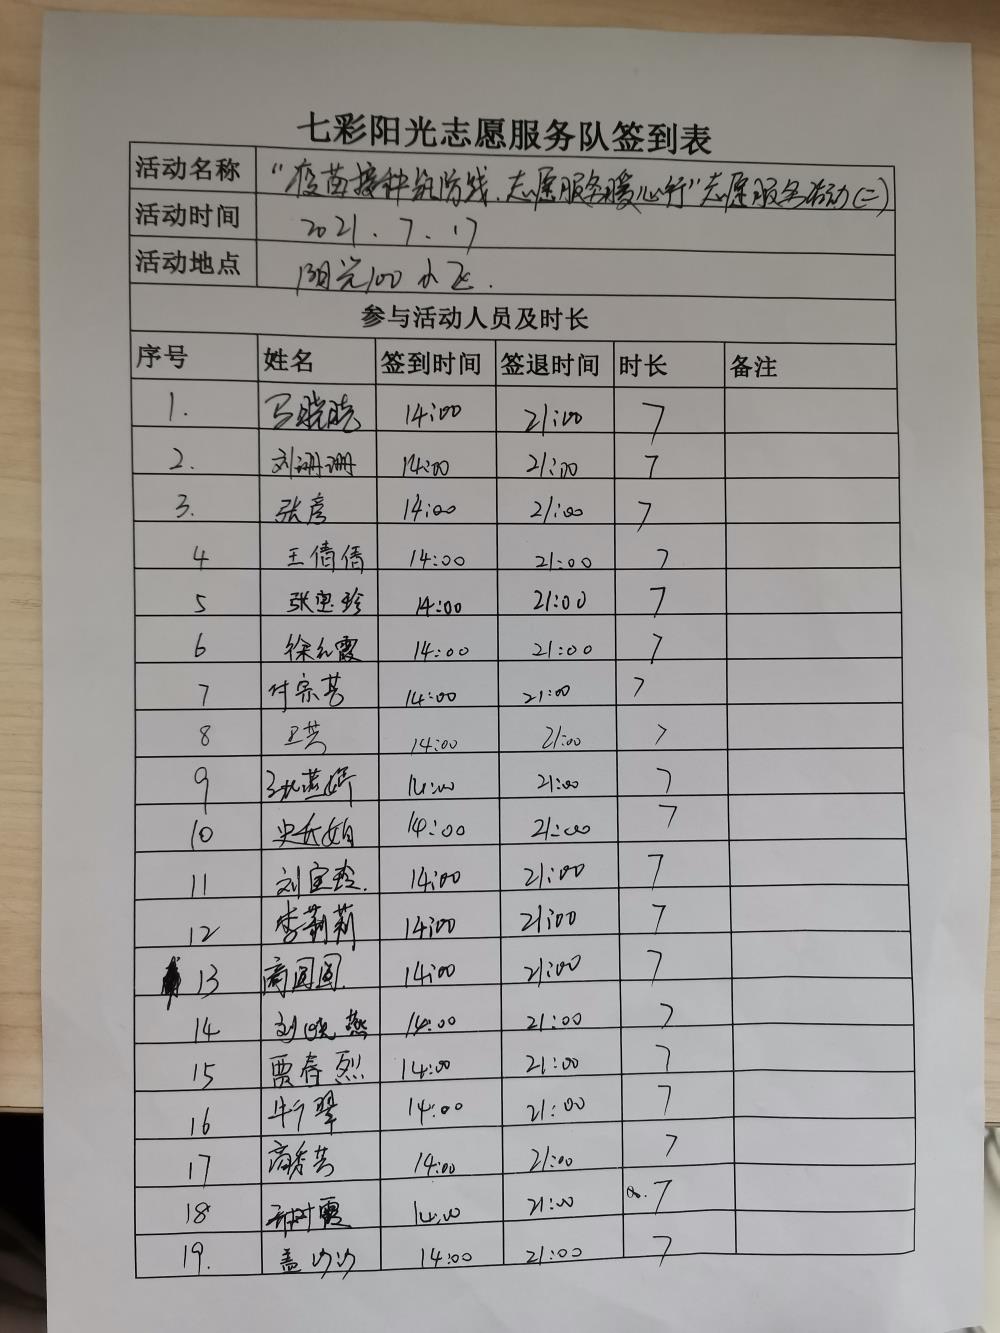 七彩阳光志愿服务队签到表
活动名称 "疫苗接种筑防线、志愿服务暖心行"志愿服务活动(二)
活动时间 2021.7.17
活动地点 阳光100小飞.
参与活动人员及时长
序号 姓名 签到时间 签退时间 时长 备注
1. 马晓晓 14:00 21:00 7
2. 刘珊珊 14:00 21:00 7
3. 张彦 14:00 21:00 7
4 王倩倩 14:00 21:00 7
5 张忠珍 14:00 21:00 7
6 徐红霞 14:00 21:00 7
7 付宗芸 14:00 21:00 7
8 14:00 21:00 7
9 14:00 21:00 7
10 14:00 21:00 7
11 刘宝玲. 14:00 21:00 7
12 李莉莉 14:00 21:00 7
13 商圆圆. 14:00 21:00 7
14 刘晓燕 14:00 21:00 7
15 贾春烈 14:00 21:00 7
16 牛翠 14:00 21:00 7
17 高秀芸 14:00 21:00 7
18 14:00 21:00 7
19. 孟沙沙 14:00 21:00 7